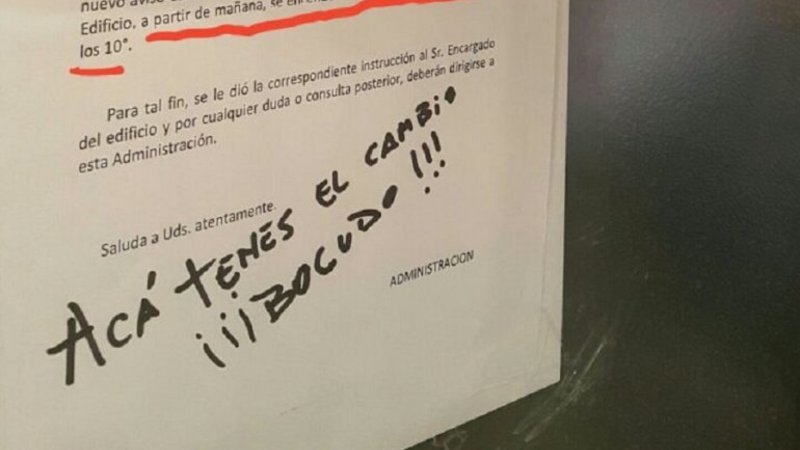 nuevo aviso
Edificio, a partir de mañana, se
los 10°.
Para tal fin, se le dió la correspondiente instrucción al Sr. Encargado
del edificio y por cualquier duda o consulta posterior, deberán dirigirse a
esta Administración.
Saluda a Uds. atentamente.
ACÁ TENES EL CAMBIO
¡¡¡BOCUDO!!!
ADMINISTRACION